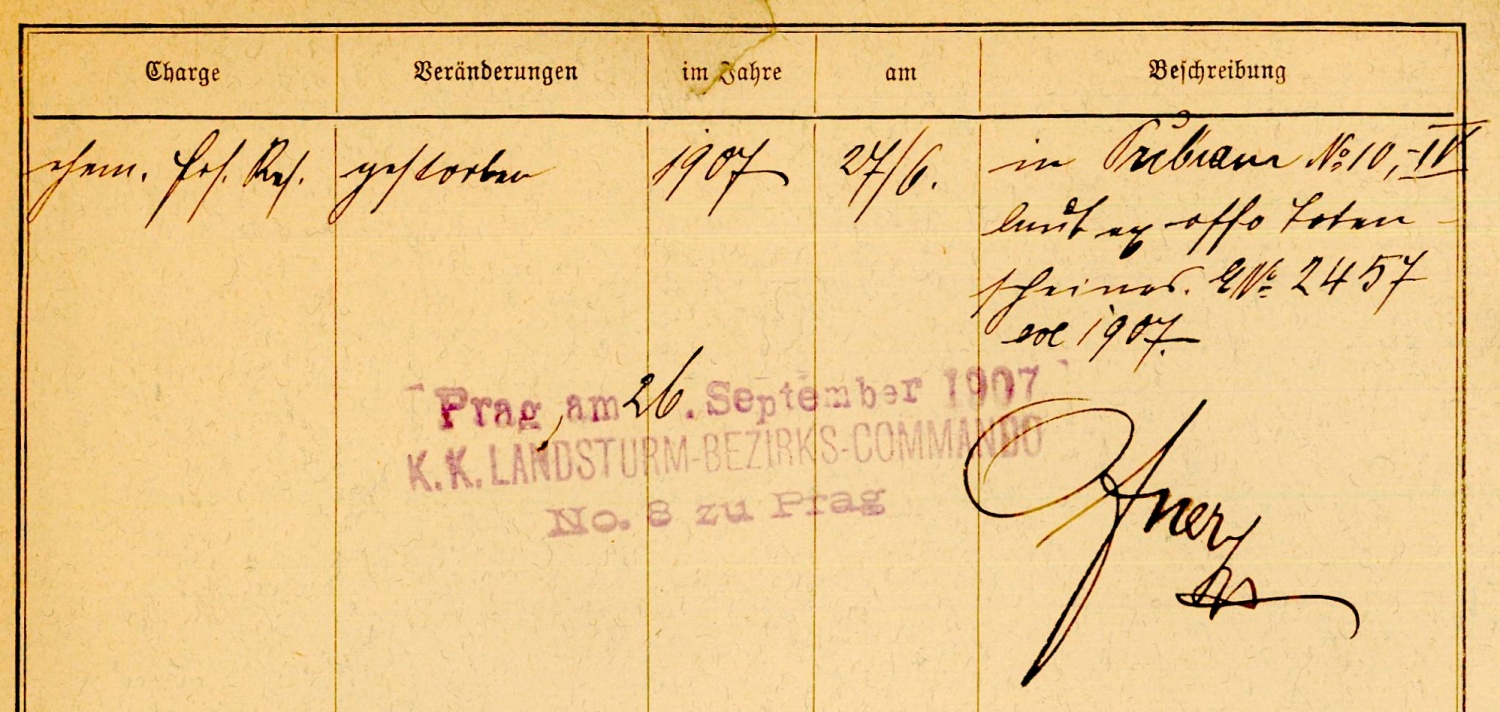 Charge Veränderungen im Jahre am Beschreibung
ehem. Ers. Res. gestorben 1907 27/6. in Přibram No 10,-IV
laut ex offo Toten-
scheines. ENo 2457
ex 1907.
Prag, am 26. September 1907
K.K. LANDSTURM-BEZIRKS-COMMANDO
No. 8 zu Prag